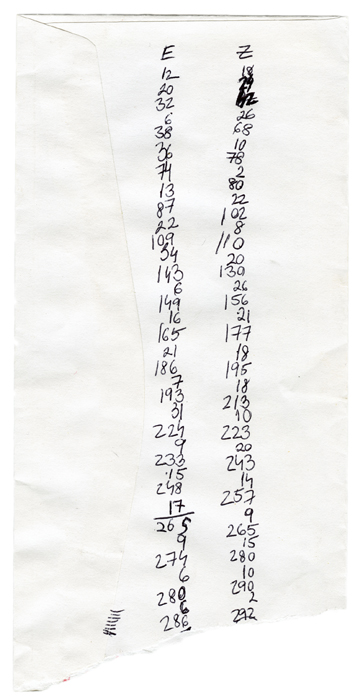 E
12
20
32
6
38
36
74
13
87
22
109
34
143
6
149
16
165
21
186
7
193
31
224
9
233
15
248
17
265
9
274
6
280
6
286
Z
18
26
68
10
78
2
80
22
102
8
110
20
130
26
156
21
177
18
195
18
213
10
223
20
243
14
257
9
265
15
280
10
290
2
292